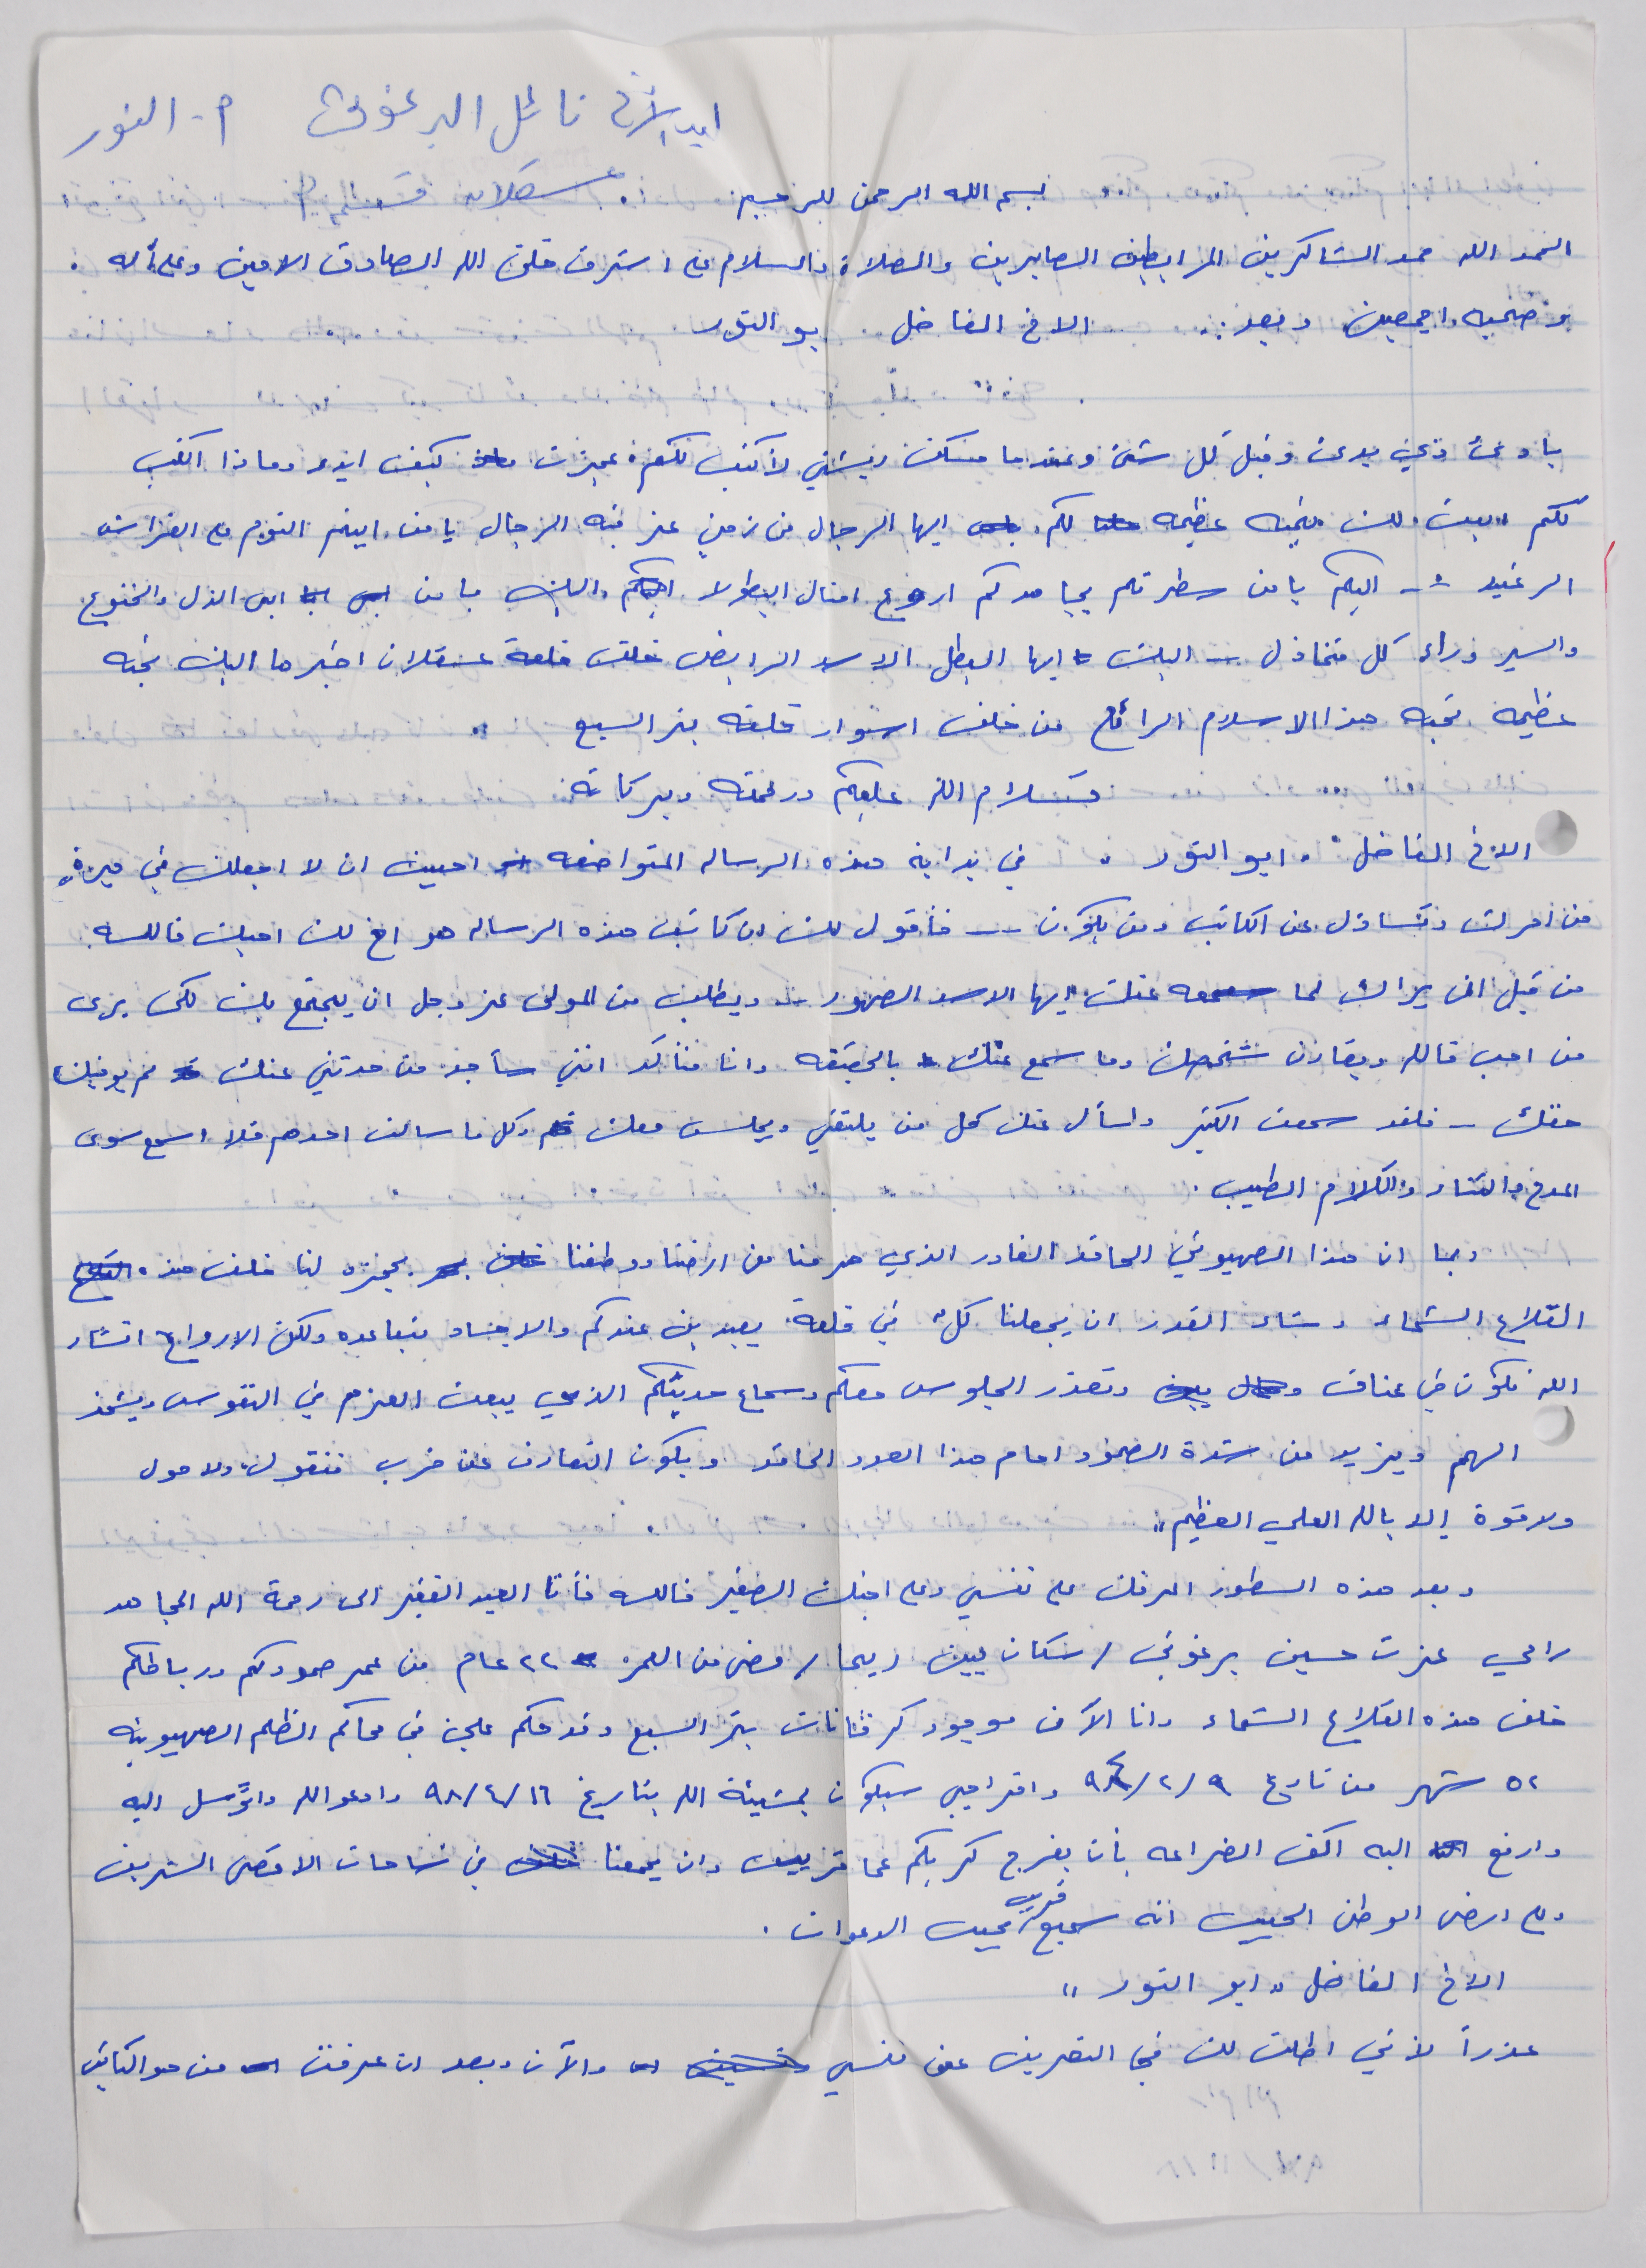 نائل البرغوثي أ- النور
بسم الله الرحمن الرحيم عسقلان قسم
الحمد الله حمد الشاكرين المرابطين الصابرين والصلاة والسلام على اشرف خلق الله الصادق الامين وعلى آله
وصحبه اجمعين وبعد .. الاخ الفاضل بو النور
بادئ ذي بدئ وقبل كل شئ وعندما مسكت ريشتي لأكتب لكم عجزت كيف ابدء وماذا اكتب
لكم ابعث لك بتحيه عظيمه لكم ايها الرجال من زمن عز فيه الرجال يا من ابيتم النوم على الفراش
الرغيد -- اليكم يا من سطرتم بجهادكم اروع امثال البطوله واليك يا من ابى الذل والخنوع
والسير وراء كل متخاذل -- اليك ايها البطل الاسد الرابض خلف قلعة عسقلان اخيرها اليك تحيه
عظيمه تحيه هذا الاسلام الرائع من خلف اسوار قلعه بئر السبع ..
فسلام الله عليكم ورحمته وبركاته
الاخ الفاضل " ابو النور " في بداية هذه الرساله المتواضعه احببت ان لا اجعلك في حيرة
من امرك وتتساؤل عن الكاتب ومن يكون -- فأقول لك ان كاتب هذه الرساله هو اخ لك احبك فالله
من قبل ان يراك لما سمعه عنك ايها الاسد الصهور -- ويطلب من المولى عز وجل ان يجتمع بك لكي يرى
من احب فالله ويقارن شخصك وما سمع عنك بالحقيقه وانا متأكد انني سأجد من حدثني عنك لم يوفيك
حقك - فلقد سمعت الكثير واسأل عنك كل من يلتقي ويجلس معك وكل ما سالت احدهم فلا اسمع سوى
المدح والثناء والكلام الطيب .
وبما ان هذا الصهيوني الحاقد الغادر الذي حرمنا من ارضنا ووطننا يحجزه لنا خلف هذه
القلاع الشماء وشاء القدر ان يجعلنا كل في قلعة بعيدين عندكم والاجساد متباعده ولكن الارواح انشاء
الله تكون في عناق وتعذر الجلوس معكم وسماع حديثكم الذي يبعث العزم في النفوس ويشحذ
الهمم ويزيد من شدة الصمود امام هذا العدو الحاقد ويكون التعارف عن قرب فنقول "ولا حول
ولا قوة إلا بالله العلي العظيم"
وبعد هذه السطور اعرفك على نفسي وعلى اخيك الصغير فالله فأنا العبد الفقير الى رحمة الله المجاهد
رامي عزت حسين برغوثي / سكان بيت ريما / مضى من العمر ٢٢ عام من عمر صمودكم ورباطكم
خلف هذه القلاع الشماء وانا الآن موجود كرفانات بئر السبع وقد حكم علي في محاكم الظلم الصهيونيه
٥٢ شهر من تاريخ ٩/٢/٩٤ وافراجي سيكون بمشيئة الله بتاريخ ١٦/٤/٩٨ وادعو الله واتوسل اليه
وارفع اليه اكف الضراعه بأن يفرج كربكم عما قريب وان يجمعنا في ساحات الاقصى الشريف
وعلى ارض الوطن الحبيب انه سميع قريب مجيب الدعوات .
الاخ الفاضل " ابو النور "
عذراً لأني اطلت لك في التعريف عن نفسي والآن وبعد ان عرفت من هو الكاتب